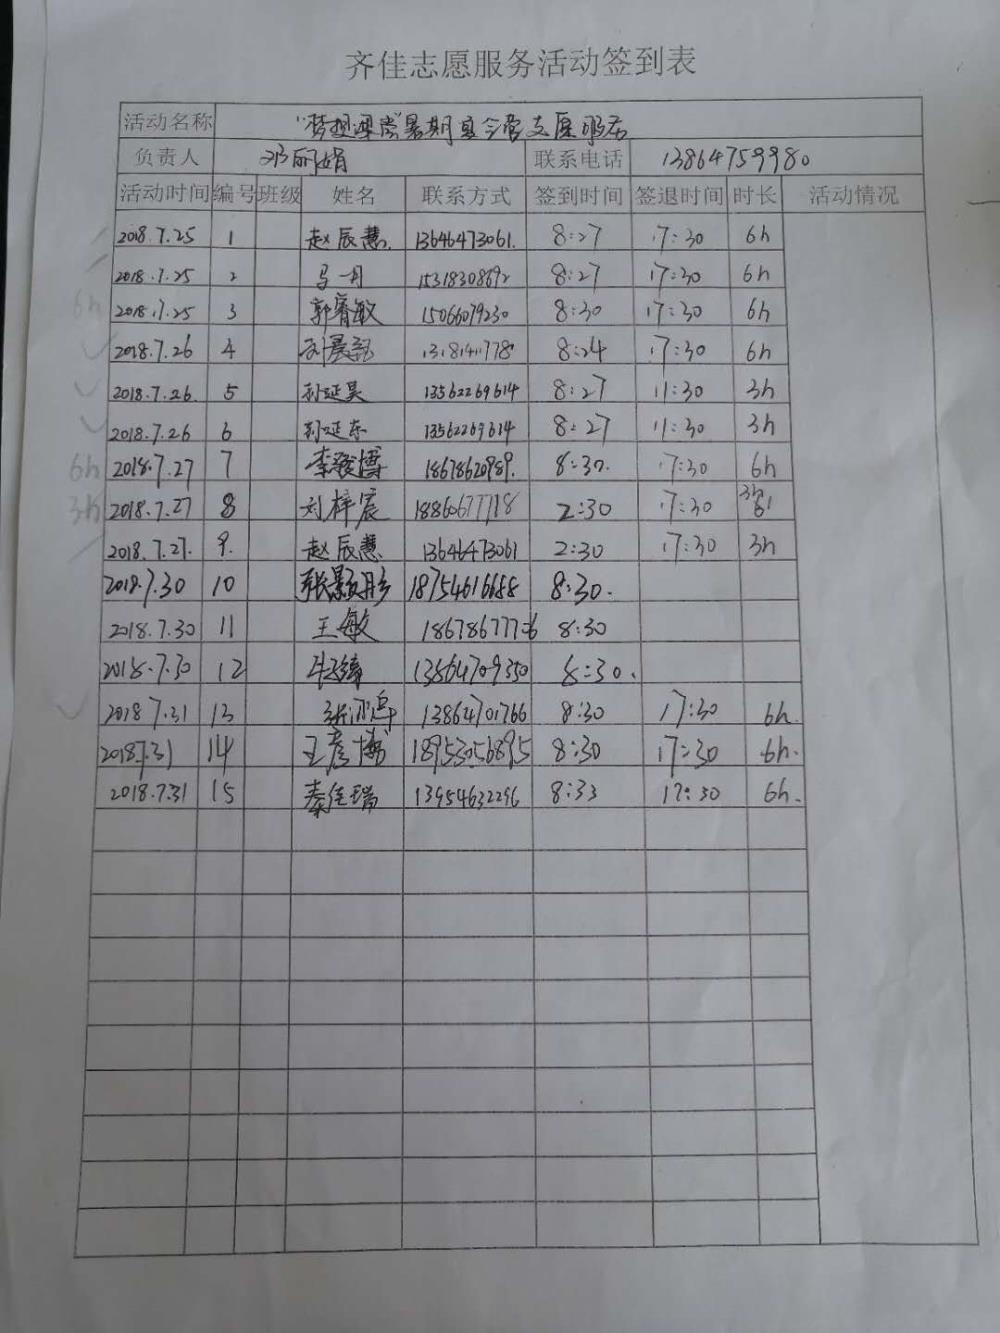 齐佳志愿服务活动签到表
活动名称 "梦想课堂"暑期夏令营志愿服务
负责人 丽娟 联系电话 13864759980
活动时间 编号 班级 姓名 联系方式 签到时间 签退时间 时长 活动情况
2018.7.25 1 赵辰慧. 13646473061. 8:27 17:30 6h
2018.7.25 2 马一丹 15318308692 8:27 17:30 6h
6h 2018.7.25 3 郭睿敏 15066079230 8:30 17:30 6h
2018.7.26 4 8:24 17:30 6h
2018.7.26. 5 孙延昊 13562269614 8:27 11:30 3h
2018.7.26 6 孙延东 13562269614 8:27 11:30 3h
6h 2018.7.27 7 李骏博 18678620989. 8:30. 17:30 6h
3h 2018.7.27 8 刘梓宸 18860677718 2:30 17:30 3h
2018.7.27. 9. 赵辰慧 13646473061 2:30 17:30 3h
2018.7.30 10 张颢彤 18754616688 8:30.
2018.7.30 11 王敏 8:30
2018.7.30 12 13864709350 8:30.
2018.7.31 13 13864701766 8:30 17:30 6h.
2018.7.31 14 王彦博 18953056895 8:30 17:30 6h.
2018.7.31 15 秦佳瑞 13954632296 8:33 17:30 6h.